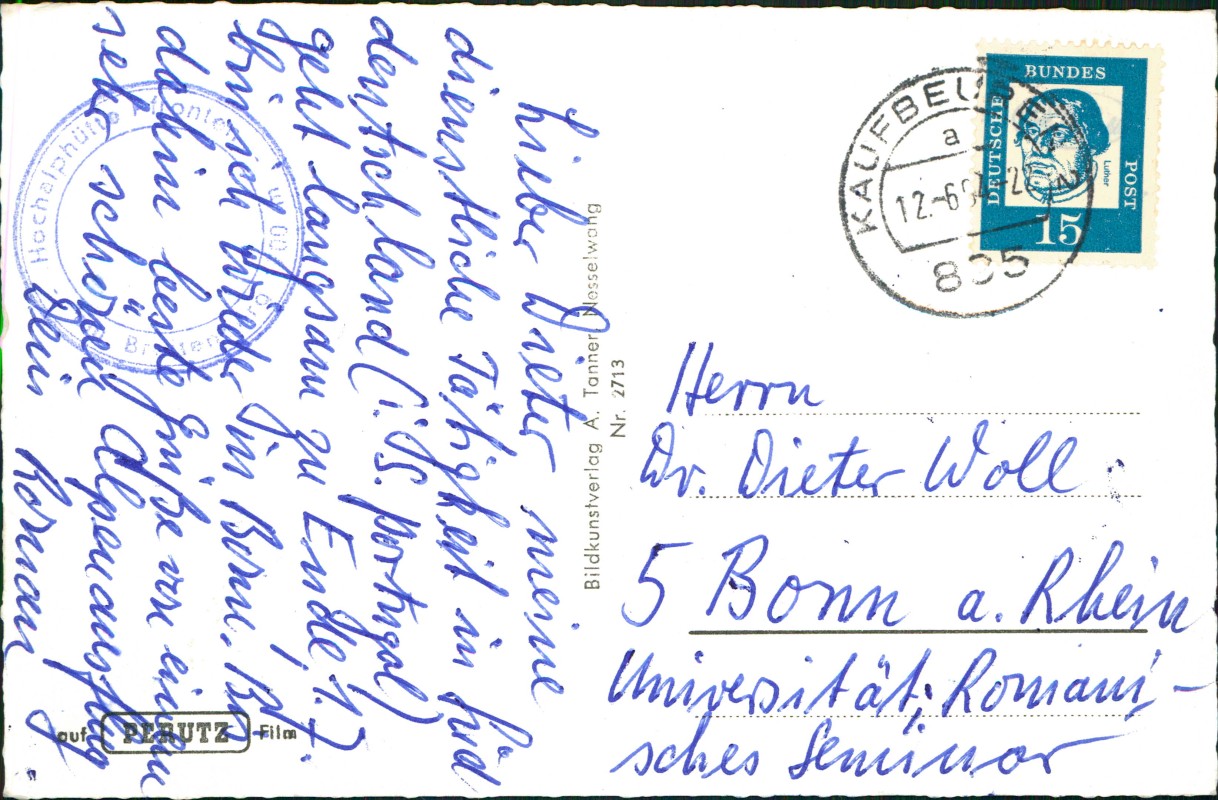 Lieber Dieter meine
dienstliche Tätigkeit in Süd
deutschland (i.G. portugal)
geht langsam zu Ende, 1.7.
bin ich wieder in Bonn. Bis
dahin beste Grüße von einem
sehr schönen Alpenausflug
Dein Roman
Hochalphütte Pfronten
Bildkunstverlag A. Tanner, Nesselwang
Nr. 2713
auf PERUTZ Film
KAUFBEUREN
a
12.-6.
895
DEUTSCHE
BUNDES
POST
Luther
15
Herrn
Dr. Dieter Woll
5 Bonn a. Rhein
Universität, Romani-
sches Seminar